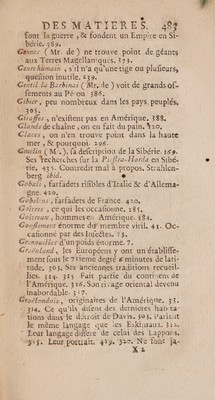 DES MATIERES. 487
font la guerre, & fondent un Empire en Si-
bérie. 389.
Gennes (Mr. de) ne trouve point de géants
aux Terres Magellaniques. 373.
Genre humain, s'il n'a qu'une tige ou plusieurs,
question inutile. 239.
Gentil la Barbinai (Mr. de) voit de grands of-
sements au Pérou 386.
Gibier, peu nombreux dans les pays peuplés,
305.
Giraffes, n'existent pas en Amérique. 388.
Glands de chaine, on en fait du pain. 320.
Glaces, on n'en trouve point dans la haute
mer, & pourquoi. 298.
Gmelin (M.). sa description de la Sibérie. 169.
Ses recherches sur la Plestra-Horda en Sibé-
rie. 435. Contredit mal à propos. Strahlen-
berg ibid.
Gobali, farfadets risibles d'Italie & d'Allema-
gne. 420.
Gobelins, farfadets de France. 420.
Goîtres, ce qui les occasionne. 185.
Goîtreux, hommes en Amérique. 184.
Gonflement énorme du membre viril. 41. Oc-
casionné par des Insectes. 73.
Grenouilles d'un poids énorme. 7.
Groenland, les Européens y ont un établisse-
ment sous le 71eme degré & minutes de lati-
tude. 303. Ses anciennes traditions recueil-
lies. 314. 315. Fait partie du continent de
l'Amérique. 316. Son rivage oriental devenu
inabordable. 317.
Groenlandois, originaires de l'Amérique. 33.
314. Ce qu'ils disent des dernieres habita-
tions dans le détroit de Davis. 303. Parlent
le même langage que les Eskimaux. 312.
Leur langage differe de celui des Lappons.
315. Leur portrait. 419. 320. Ne font ja-
X 2